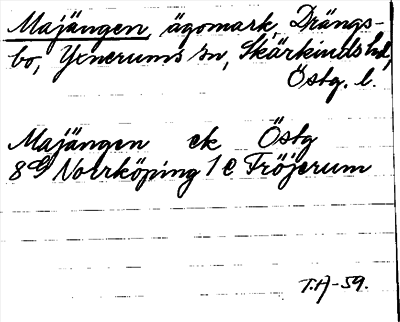 Majängen, ägomark, Drängs-
bo, Yxnerums sn, Skärkinds hd,
Östg. l.
Majängen ek Östg
8G Norrköping 1 e Fröjerum
T.H-59.